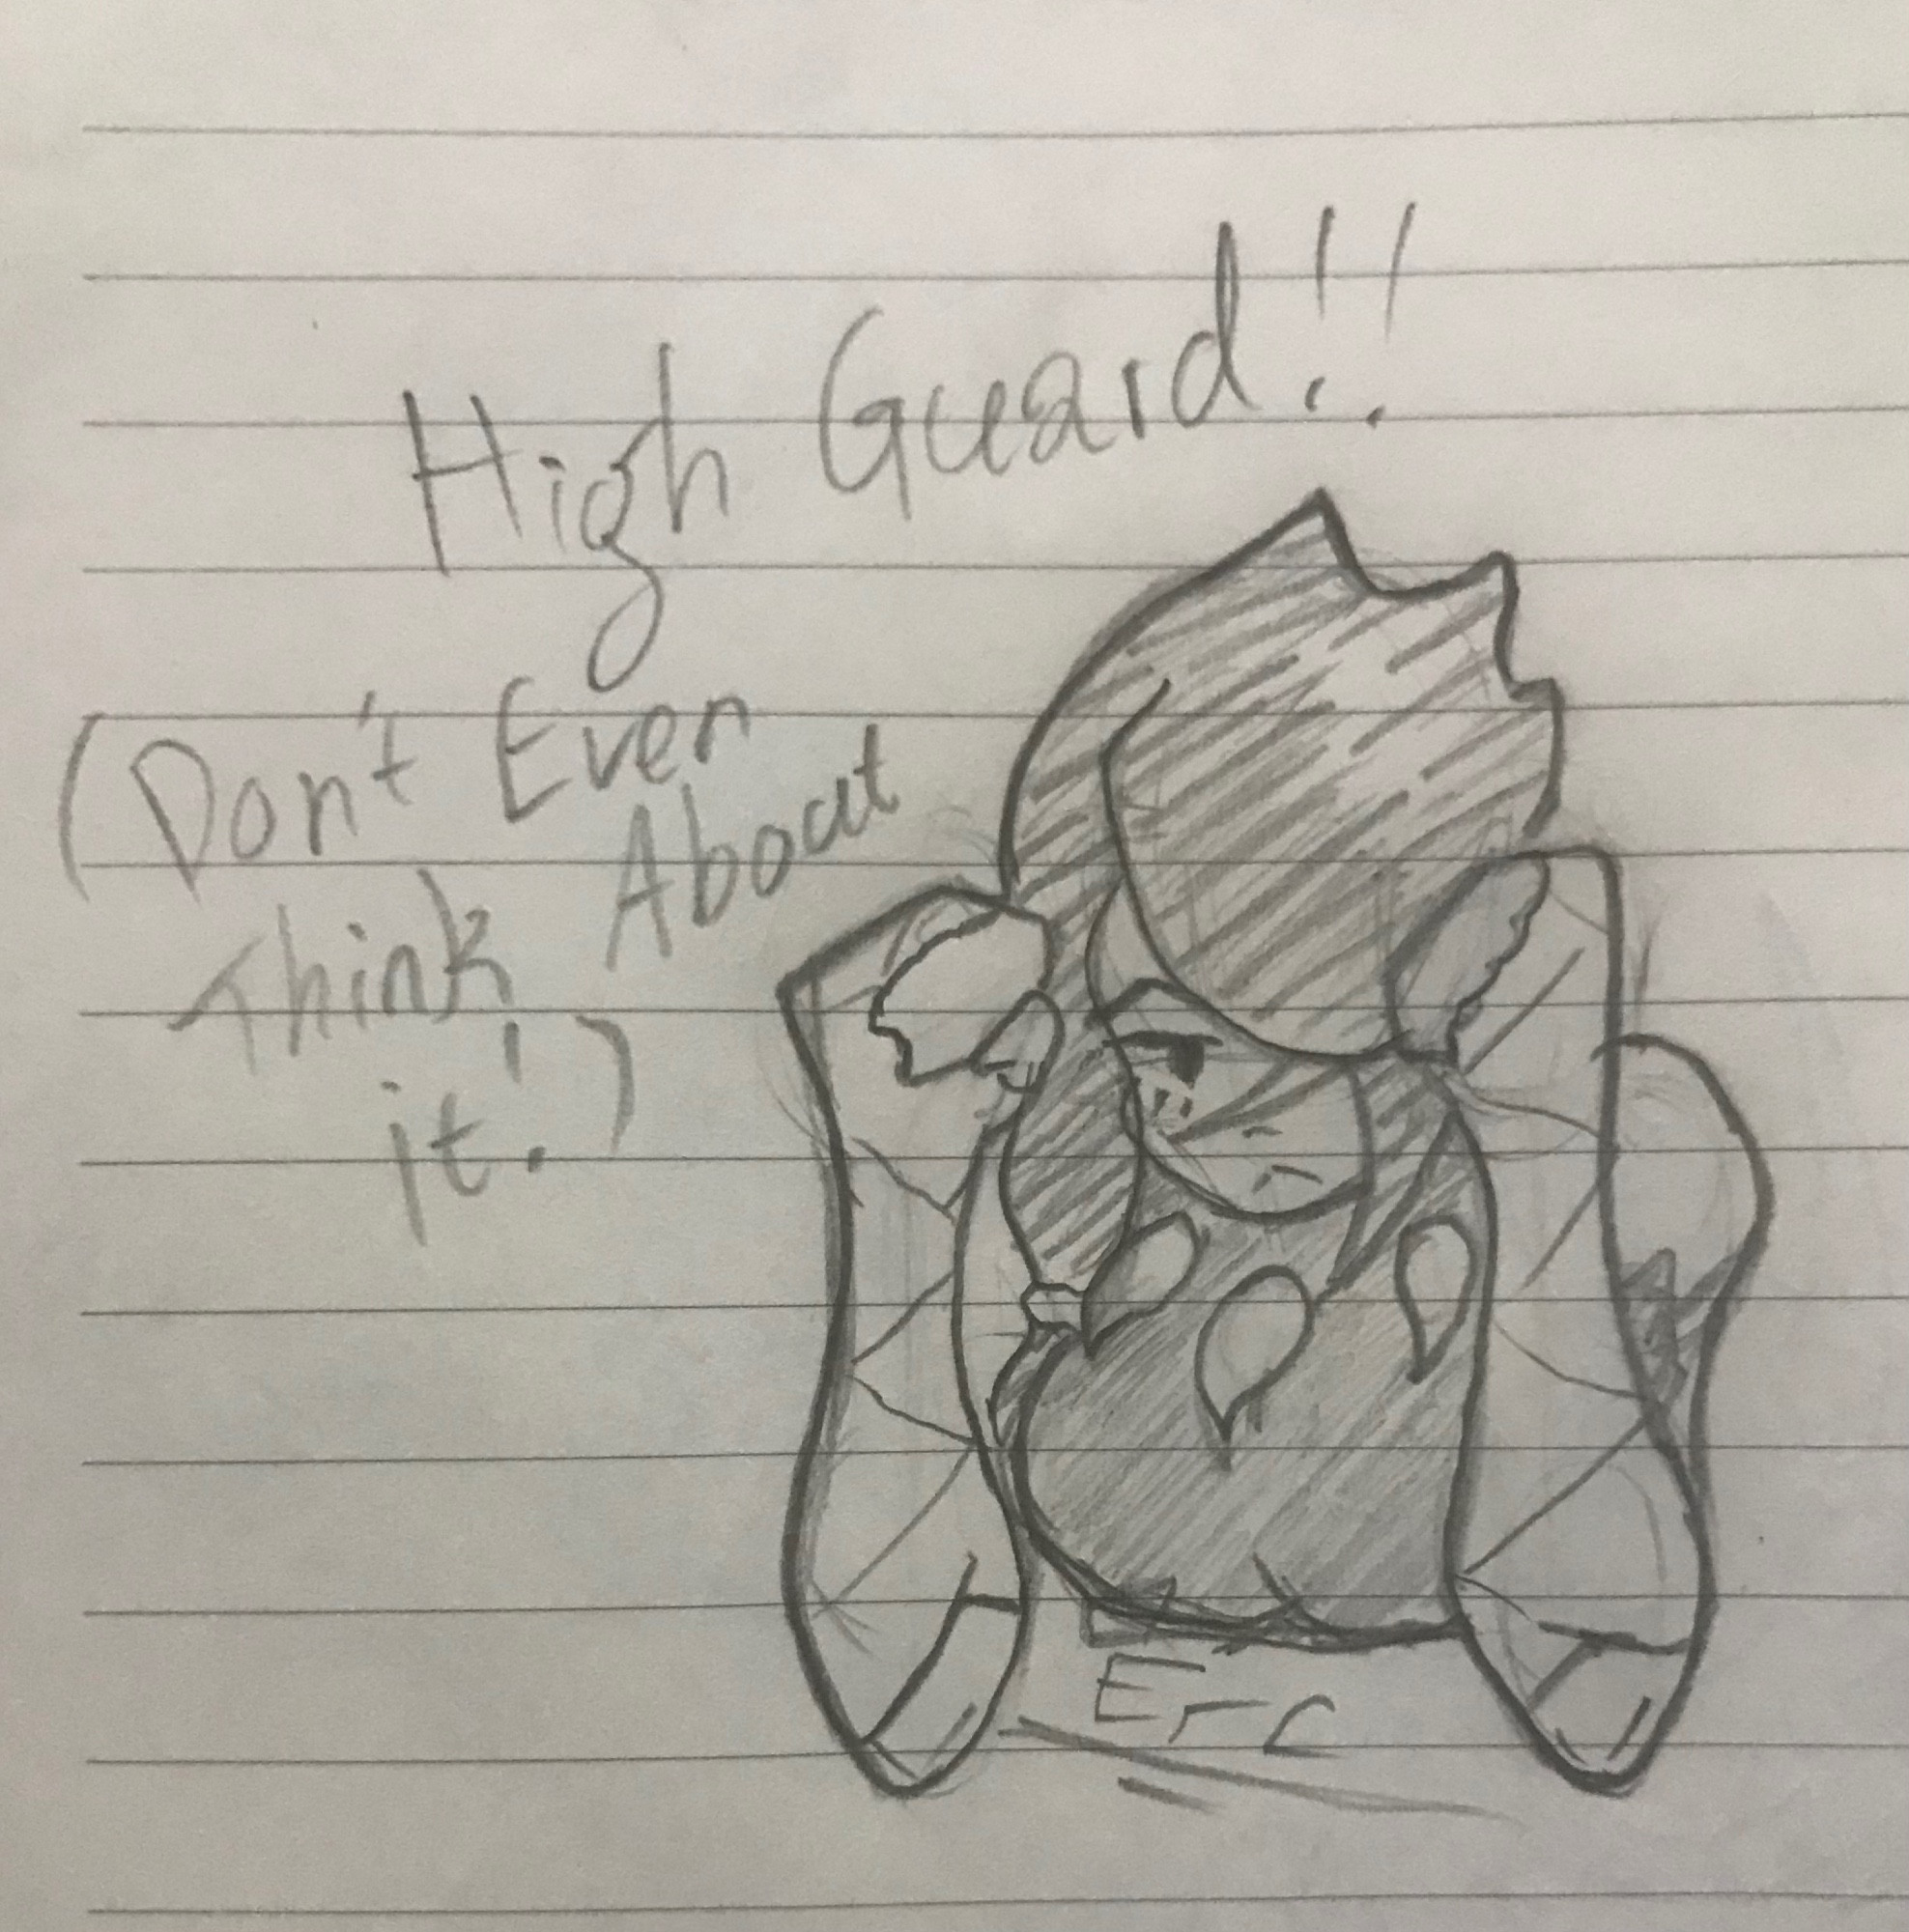 High Guard!!
(Don't Even
Think About
it!)
Erc